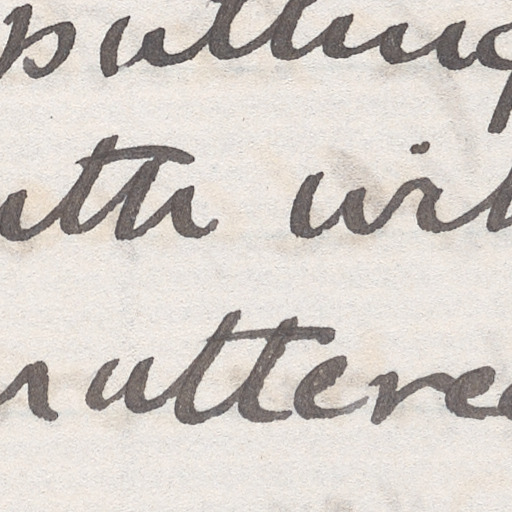 putting
uth wil
nuttered